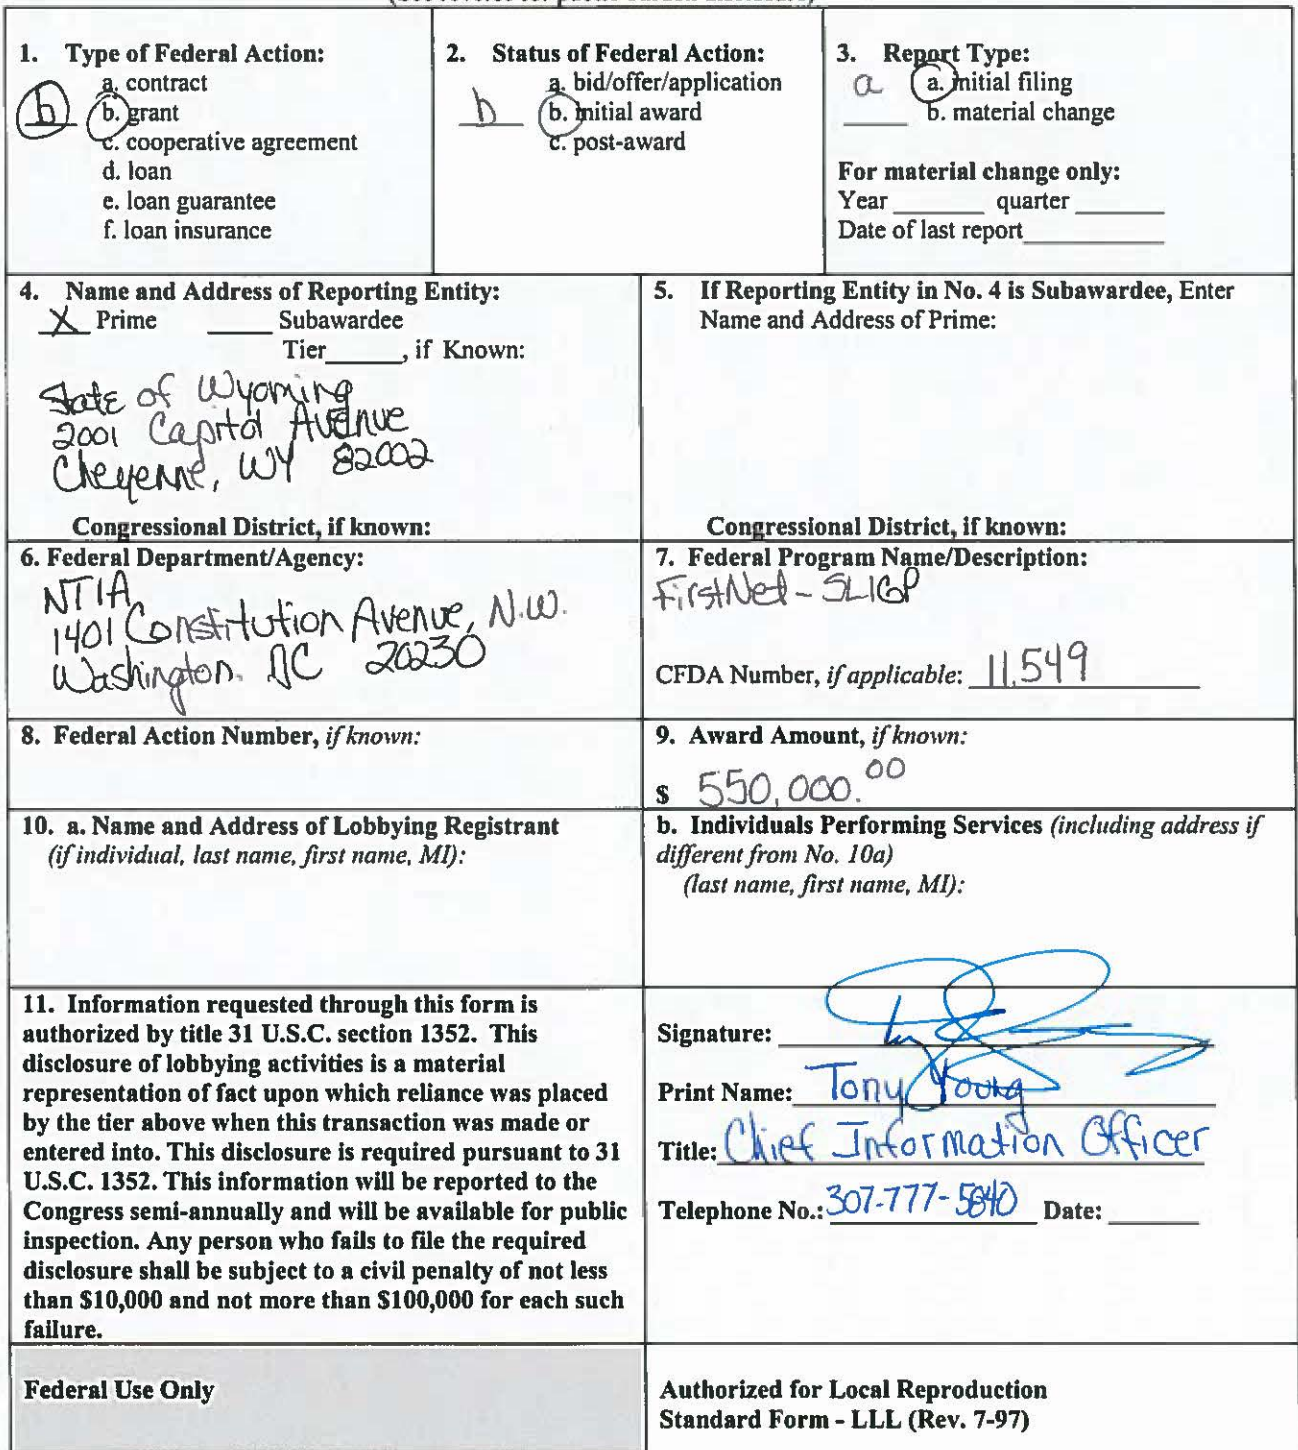 1. Type of Federal Action:
a. contract
b b. grant
c. cooperative agreement
d. loan
e. loan guarantee
f. loan insurance
2. Status of Federal Action:
a. bid/offer/application
b b. initial award
c. post-award
3. Report Type:
a a. initial filing
b. material change
For material change only:
Year ________ quarter ________
Date of last report____________
4. Name and Address of Reporting Entity:
X Prime ______ Subawardee
Tier______, if Known:
State of Wyoming
2001 Capitol Avenue
Cheyenne, WY 82002
Congressional District, if known:
5. If Reporting Entity in No. 4 is Subawardee, Enter
Name and Address of Prime:
Congressional District, if known:
6. Federal Department/Agency:
NTIA
1401 Constitution Avenue, N.W.
Washington. DC 20230
7. Federal Program Name/Description:
FirstNet - SLIGP
CFDA Number, if applicable: 11.549
8. Federal Action Number, if known:
9. Award Amount, if known:
$ 550,000.00
10. a. Name and Address of Lobbying Registrant
(if individual, last name, first name, MI):
b. Individuals Performing Services (including address if
different from No. 10a)
(last name, first name, MI):
11. Information requested through this form is
authorized by title 31 U.S.C. section 1352. This
disclosure of lobbying activities is a material
representation of fact upon which reliance was placed
by the tier above when this transaction was made or
entered into. This disclosure is required pursuant to 31
U.S.C. 1352. This information will be reported to the
Congress semi-annually and will be available for public
inspection. Any person who fails to file the required
disclosure shall be subject to a civil penalty of not less
than $10,000 and not more than $100,000 for each such
failure.
Signature:
Print Name: Tony Young
Title: Chief Information Officer
Telephone No.: 307-777-5840 Date: ________
Federal Use Only
Authorized for Local Reproduction
Standard Form - LLL (Rev. 7-97)